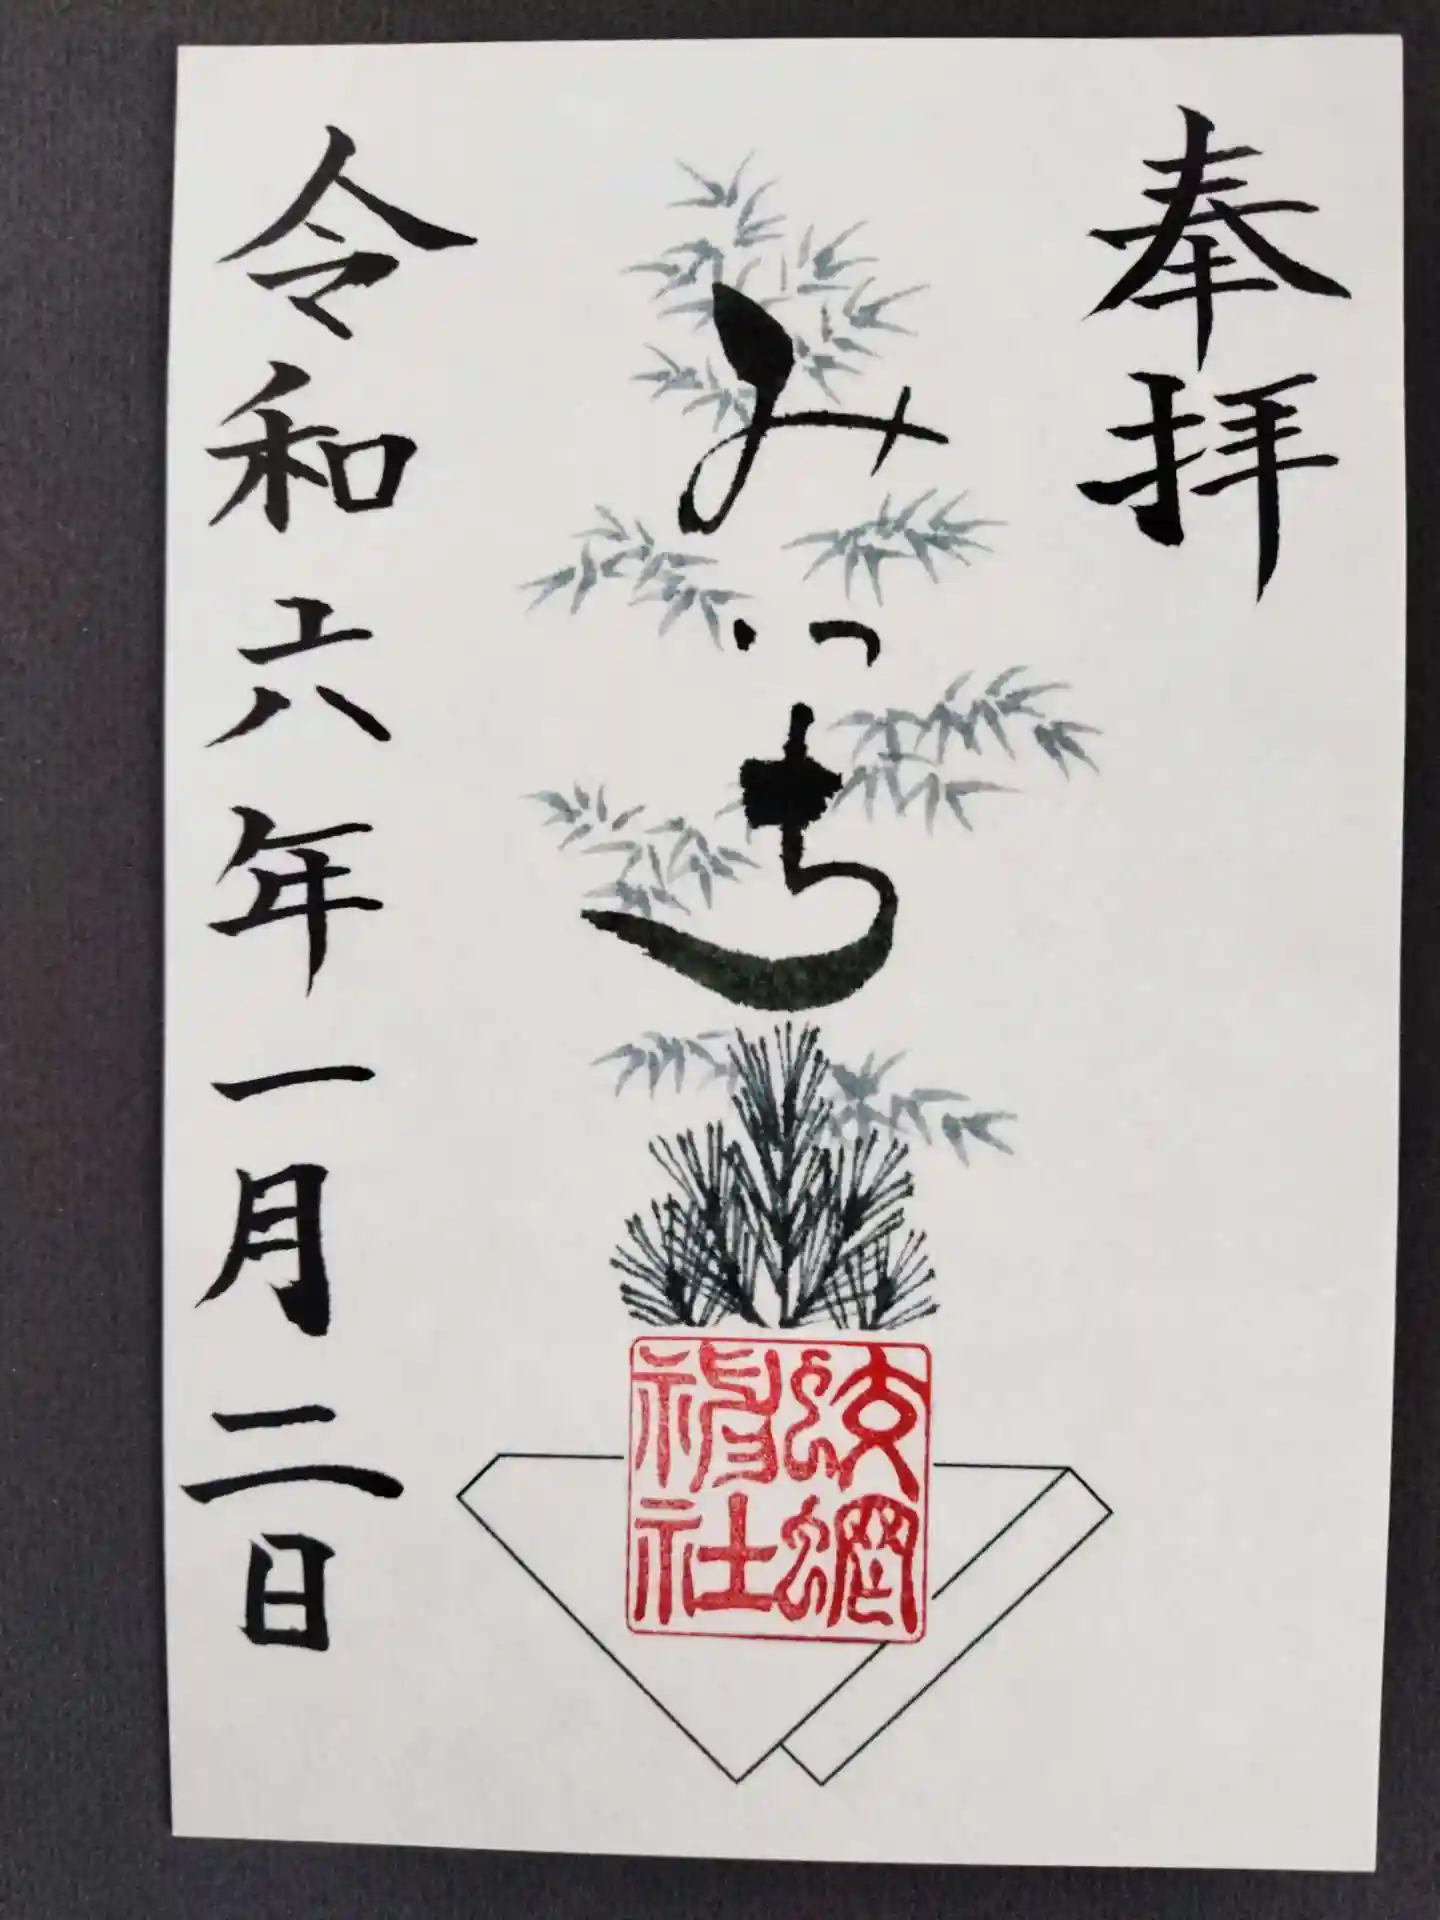 奉拝
みつち
蛟蝄
神社
令和六年一月二日